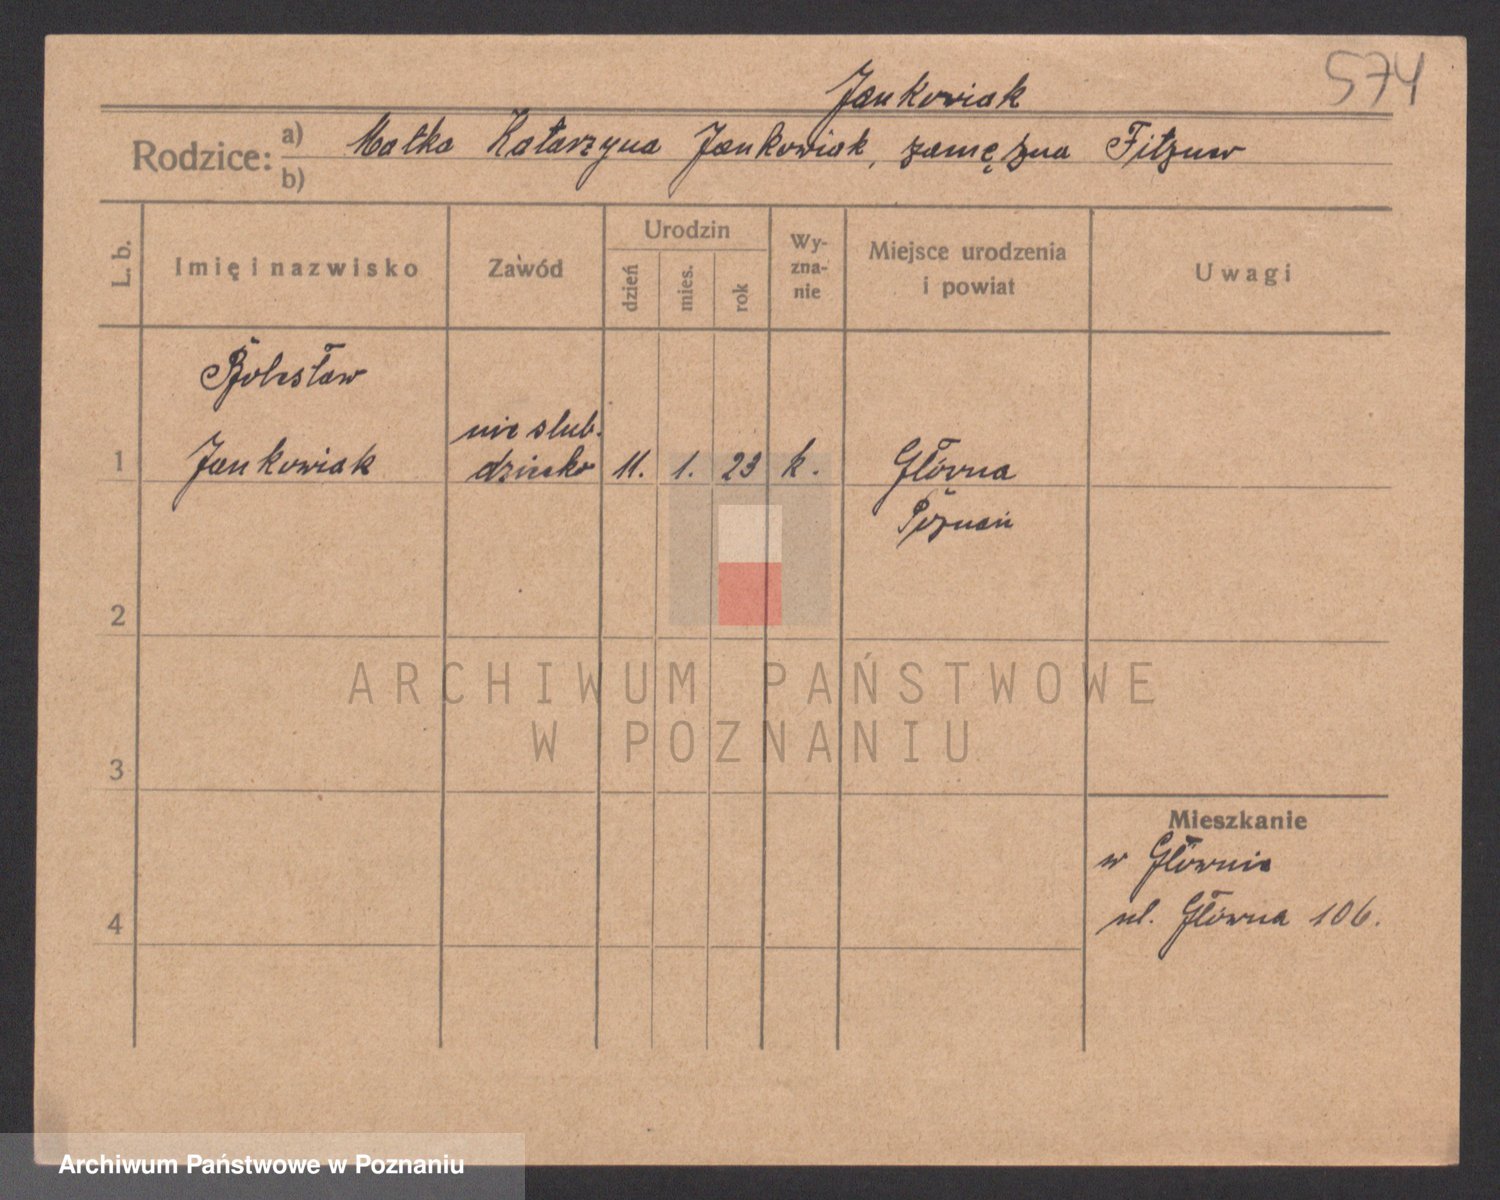 574
Jankowiak
Rodzice: a) Matka Katarzyna Jankowiak, zamężna
b)
L. b.
Imię i nazwisko
Zawód
Urodzin
dzień
mies.
rok
Wy-
zna-
nie
Miejsce urodzenia
i powiat
Uwagi
Bolesław
nie slub.
1 Jankowiak dziecko 11. 1. 23 k. Główna
Poznań
2
3
4
Mieszkanie
w Głównie
ul. Główna 106.
ARCHIWUM PAŃSTWOWE
W POZNANIU
Archiwum Państwowe w Poznaniu